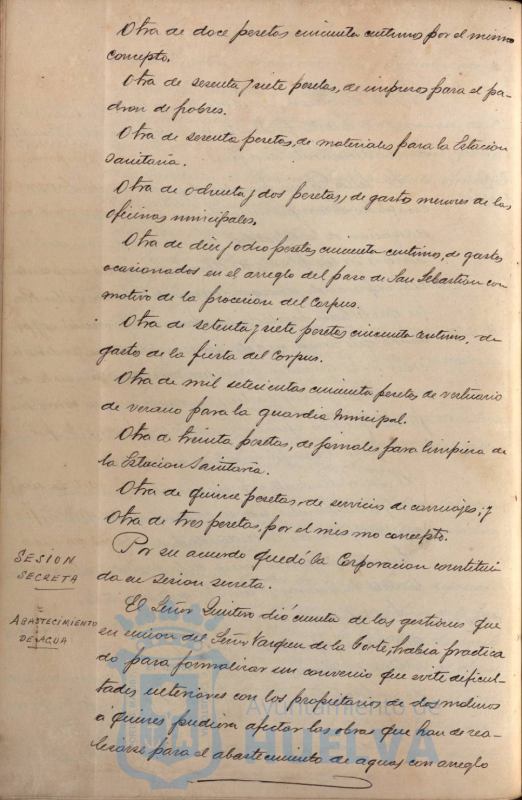 Otra de doce pesetas cincuenta centimos por el mismo
concepto.
Otra de sesenta y siete pesetas, de impresos para el pa-
dron de pobres.
Otra de sesenta pesetas, de materiales para la Estacion
Sanitaria.
Otra de ochenta y dos pesetas, de gastos menores de las
oficinas municipales.
Otra de diez y ocho pesetas cincuenta centimos, de gastos
ocasionados en el arreglo del paso de San Sebastian con
motivo de la procesion del Corpus.
Otra de setenta y siete pesetas cincuenta centimos, de
gasto de la fiesta del Corpus.
Otra de mil setecientas cincuenta pesetas de vestuario
de verano para la guardia Municipal.
Otra de treinta pesetas, de jornales para limpieza de
la Estacion Sanitaria.
Otra de quince pesetas, de servicio de carruajes; y
Otra de tres pesetas, por el mismo concepto.
SESION
SECRETA
Por su acuerdo quedó la Corporacion constitui-
da en sesion secreta.
ABASTECIMIENTO
DE AGUA
El Señor Quintero dió cuenta de las gestiones que
en union del Señor Vazquez de la Corte, habia practica
do para formalizar un convenio que evite dificul-
tades ulteriores con los propietarios de dos molinos
á quienes pudiera afectar las obras que han de rea-
lizarse para el abastecimiento de aguas con arreglo
Ayuntamiento de
HUELVA